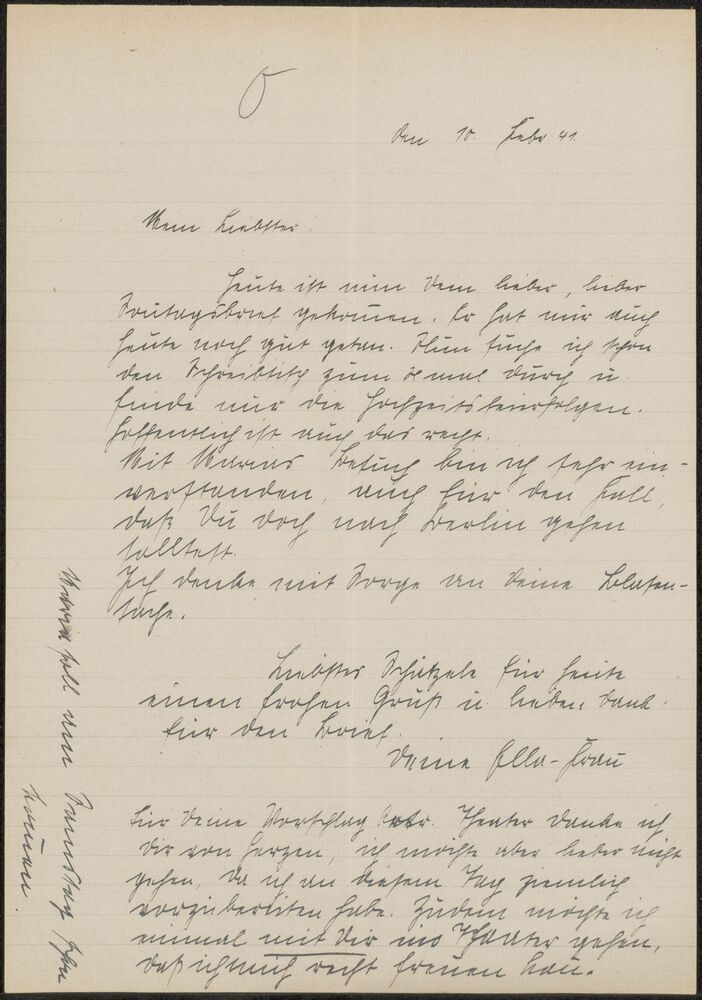 den 10. Febr. 41.
Mein Liebster!
Heute ist nun Dein lieber, lieber
Sontagsbrief gekom̄en. Er hat mir auch
heute noch gut getan. Nun suche ich schon
den Schreibtisch zum mal durch u.
finde nur die Hochzeitsfeierfolgen.
Hoffentlich ist auch das recht.
Mit Marias Besuch bin ich sehr ein-
verstanden, auch für den Fall,
daß Du doch nach Berlin gehen
solltest.
Ich denke mit Sorge an Deine Blasen-
sache.
Liebstes Schätzele für heute
einen frohen Gruß u. lieben Dank
für den Brief.
Deine Ella-Frau
Für Deine Vorschlag betr. Theater danke ich
Dir von Herzen, ich möchte aber lieber nicht
gehen, da ich an diesem Tag ziemlich
vorzubereiten habe. Zudem möchte ich
einmal mit Dir ins Theater gehen,
daß ich mich recht freuen kan̄.
Maria soll am Samstag schon
kom̄en.